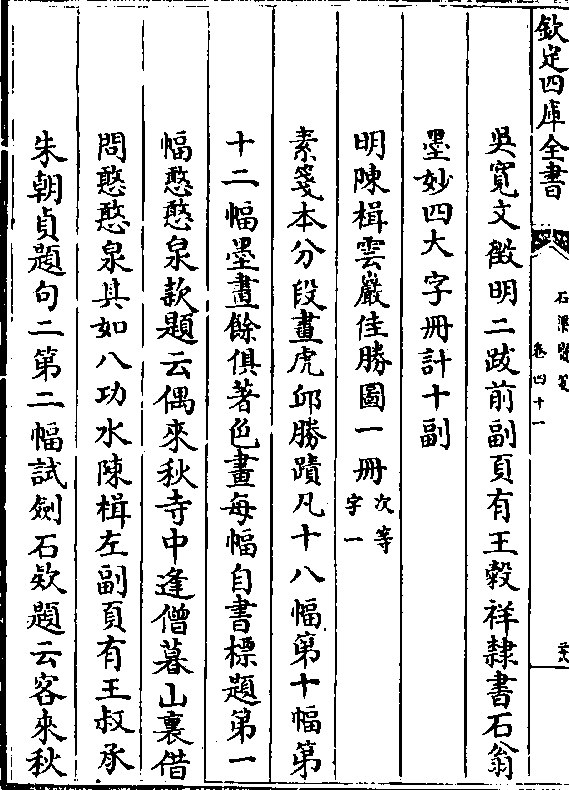 欽定四庫全書
石渠寶笈
卷四十一
吳寛文徴明二跋前副頁有王穀祥隸書石翁
墨妙四大字冊計十副
明陳楫雲巖佳勝圖一冊次等
字一
素箋本分段畫虎邱勝蹟凡十八幅第十幅第
十二幅墨畫餘俱著色畫每幅自書標題第一
幅憨憨泉款題云偶來秋寺中逢僧暮山裏借
問憨憨泉具如八功水陳楫左副頁有王叔承
朱朝貞題句二第二幅試劍石欵題云客來秋